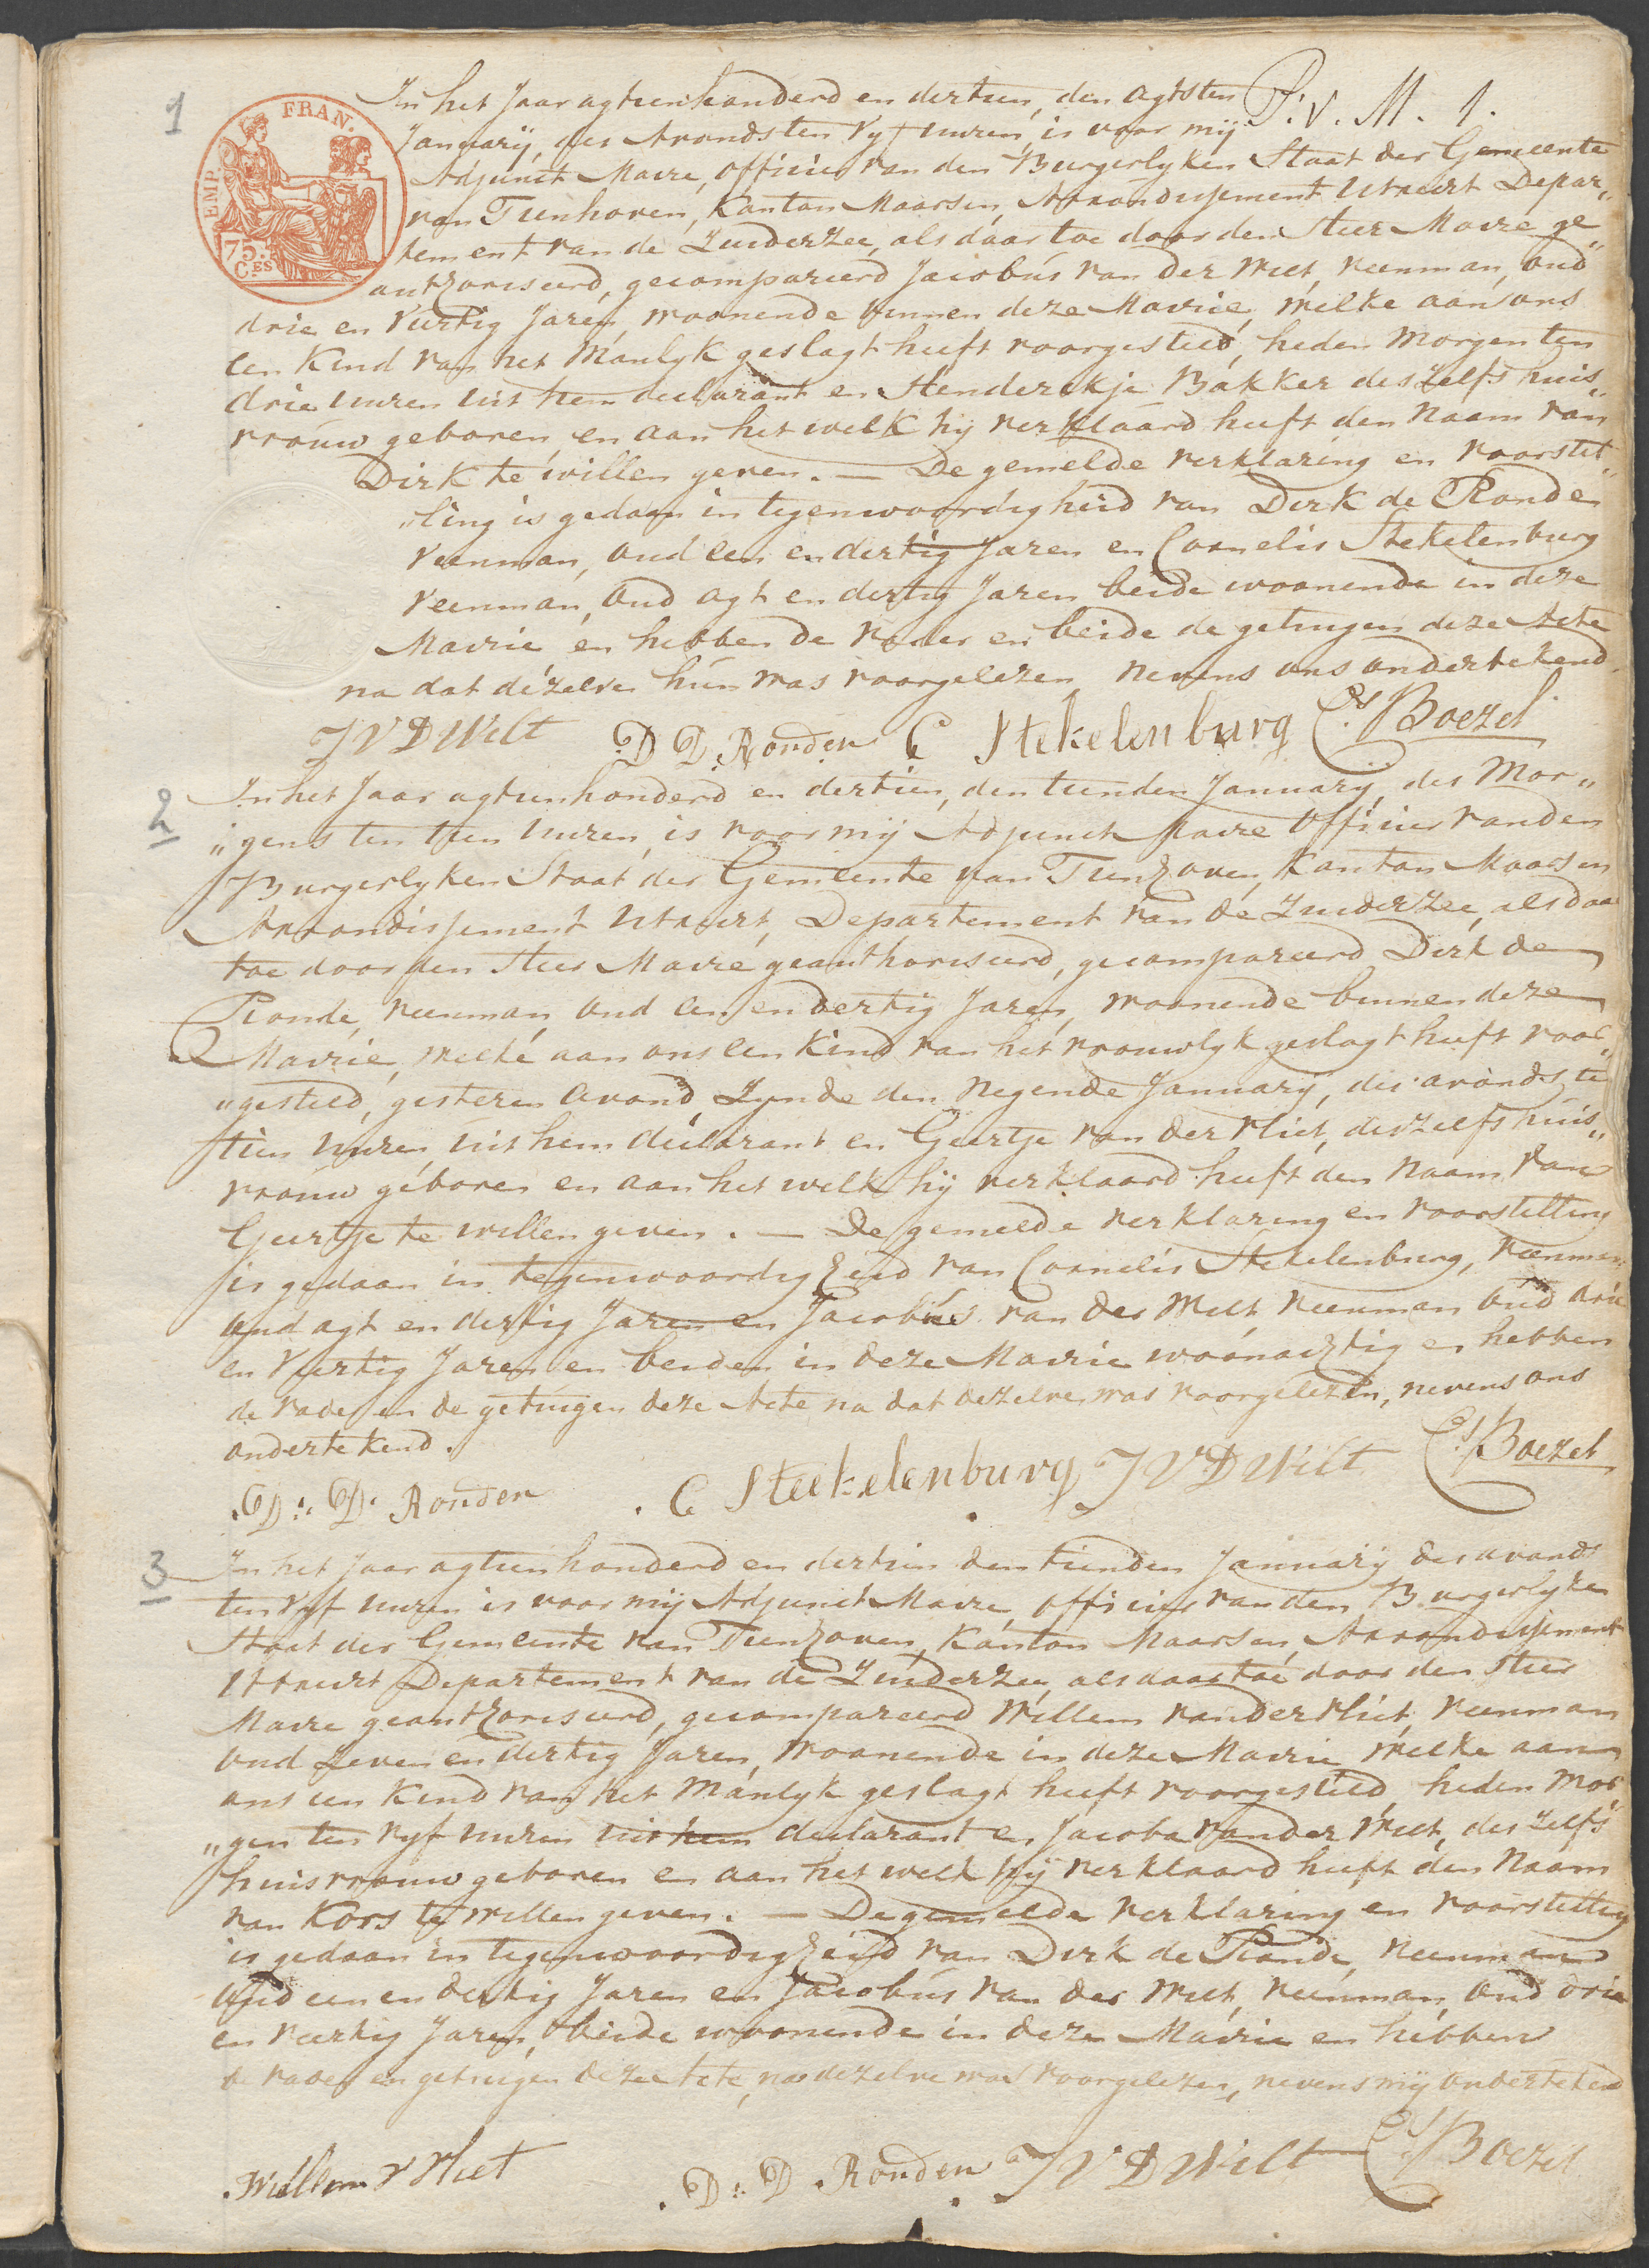 1
P. V. M. 1.
EMP. FRAN.
75.
C.ES
In het Jaar agtienhonderd en dertien, den agtsten
Januarij, des Avonds ten vyf uuren, is voor mij
Adjunct Maire, officier van den Burgerlyken Staat der Gemeente
van Tienhoven, Kanton Maarsen, Arrondissement Utrecht Depar„
tement van de Zuiderzee, als daartoe door den Heer Maire ge„
authoriseerd, gecompareerd Jacobus van der Wilt, veenman, oud
drie en Veertig Jaren, woonende binnen deze Mairie, welke aan ons
een Kind van het Manlyk geslagt heeft voorgesteld, heden Morgen ten
drie uuren uit hem declarant en Henderikje Bakker deszelfs huis„
vrouw geboren, en aan het welk hij verklaard heeft den Naam van
Dirk te willen geven. — De gemelde verklaring en voorstel„
„ling is gedaan in tegenwoordigheid van Dirk de Ronde
veenman, oud een en dertig Jaren en Cornelis Stekelenburg
veenman, oud agt en dertig Jaren beide woonende in deze
Mairie en hebben de Vader en beide de getuigen deze Acte
na dat dezelve hun was voorgelezen nevens ons ondertekend.
J V D Wilt D D. Ronden C Stekelenburg Cs. Boezel
2
In het Jaar agtienhonderd en dertien, den tienden Januarij des Mor„
„gens ten tien uuren, is voor mij Adjunct Maire Officier van den
Burgerlyken Staat der Gemeente van Tienhoven, Kanton Maarsen
Arrondissement Utrecht, Departement van de Zuiderzee, als daar
toe door den Heer Maire geauthoriseerd, gecompareerd Dirk de
Ronde, veenman, oud een en dertig Jaren, woonende binnen deze
Mairie, welke aan ons een Kind van het vrouwlyk geslagt heeft voor„
„gesteld, gisteren avond, Zynde den Negende Januarij, des avonds te
tien uuren, uit hem declarant en Geertje van der Vliet, deszelfs huis„
vrouw geboren en aan het welk hij verklaard heeft den Naam van
Geertje te willen geven. — De gemelde verklaring en voorstelling
is gedaan in tegenwoordigheid van Cornelis Stekelenburg, veenman
oud agt en dertig Jaren en Jacobus van der Wilt veenman oud drie
en Veertig Jaren en beiden in deze Mairie woonachtig en hebben
de vader en de getuigen deze Acte na dat dezelve was voorgelezen, nevens ons
ondertekend.
D. D. Ronden C Steekelenburg J V D Wilt Cs. Boezel
3
In het Jaar agtienhonderd en dertien den tienden Januarij des avonds
ten vyf uuren is voor mij Adjunct Maire, officier van den Burgerlyken
Staat der Gemeente van Tienhoven, Kanton Maarsen, Arrondissement
Utrecht Departement van de Zuiderzee, als daartoe door den Heer
Maire geauthoriseerd, gecompareerd Willem van der Vliet, veenman
oud Zeven en dertig Jaren, woonende in deze Mairie welke aan
ons een Kind van het Manlyk geslagt heeft voorgesteld, heden Mor
„gen ten vyf uuren uit hem declarant en Jacoba van der Wilt, deszelfs
huisvrouw geboren en aan het welk hij verklaard heeft den Naam
van Kors te willen geven. — De gemelde verklaring en voorstelling
is gedaan in tegenwoordigheid van Dirk de Ronde, veenman
oud een en dertig Jaren en Jacobus van der Wilt, veenman, oud drie
en veertig Jaren, beide woonende in deze Mairie en hebben
de vader en getuigen deze Acte, na dezelve was voorgelezen, nevens mij ondertekend
Willem v Vliet D. D. Ronden J V D Wilt Cs. Boezel